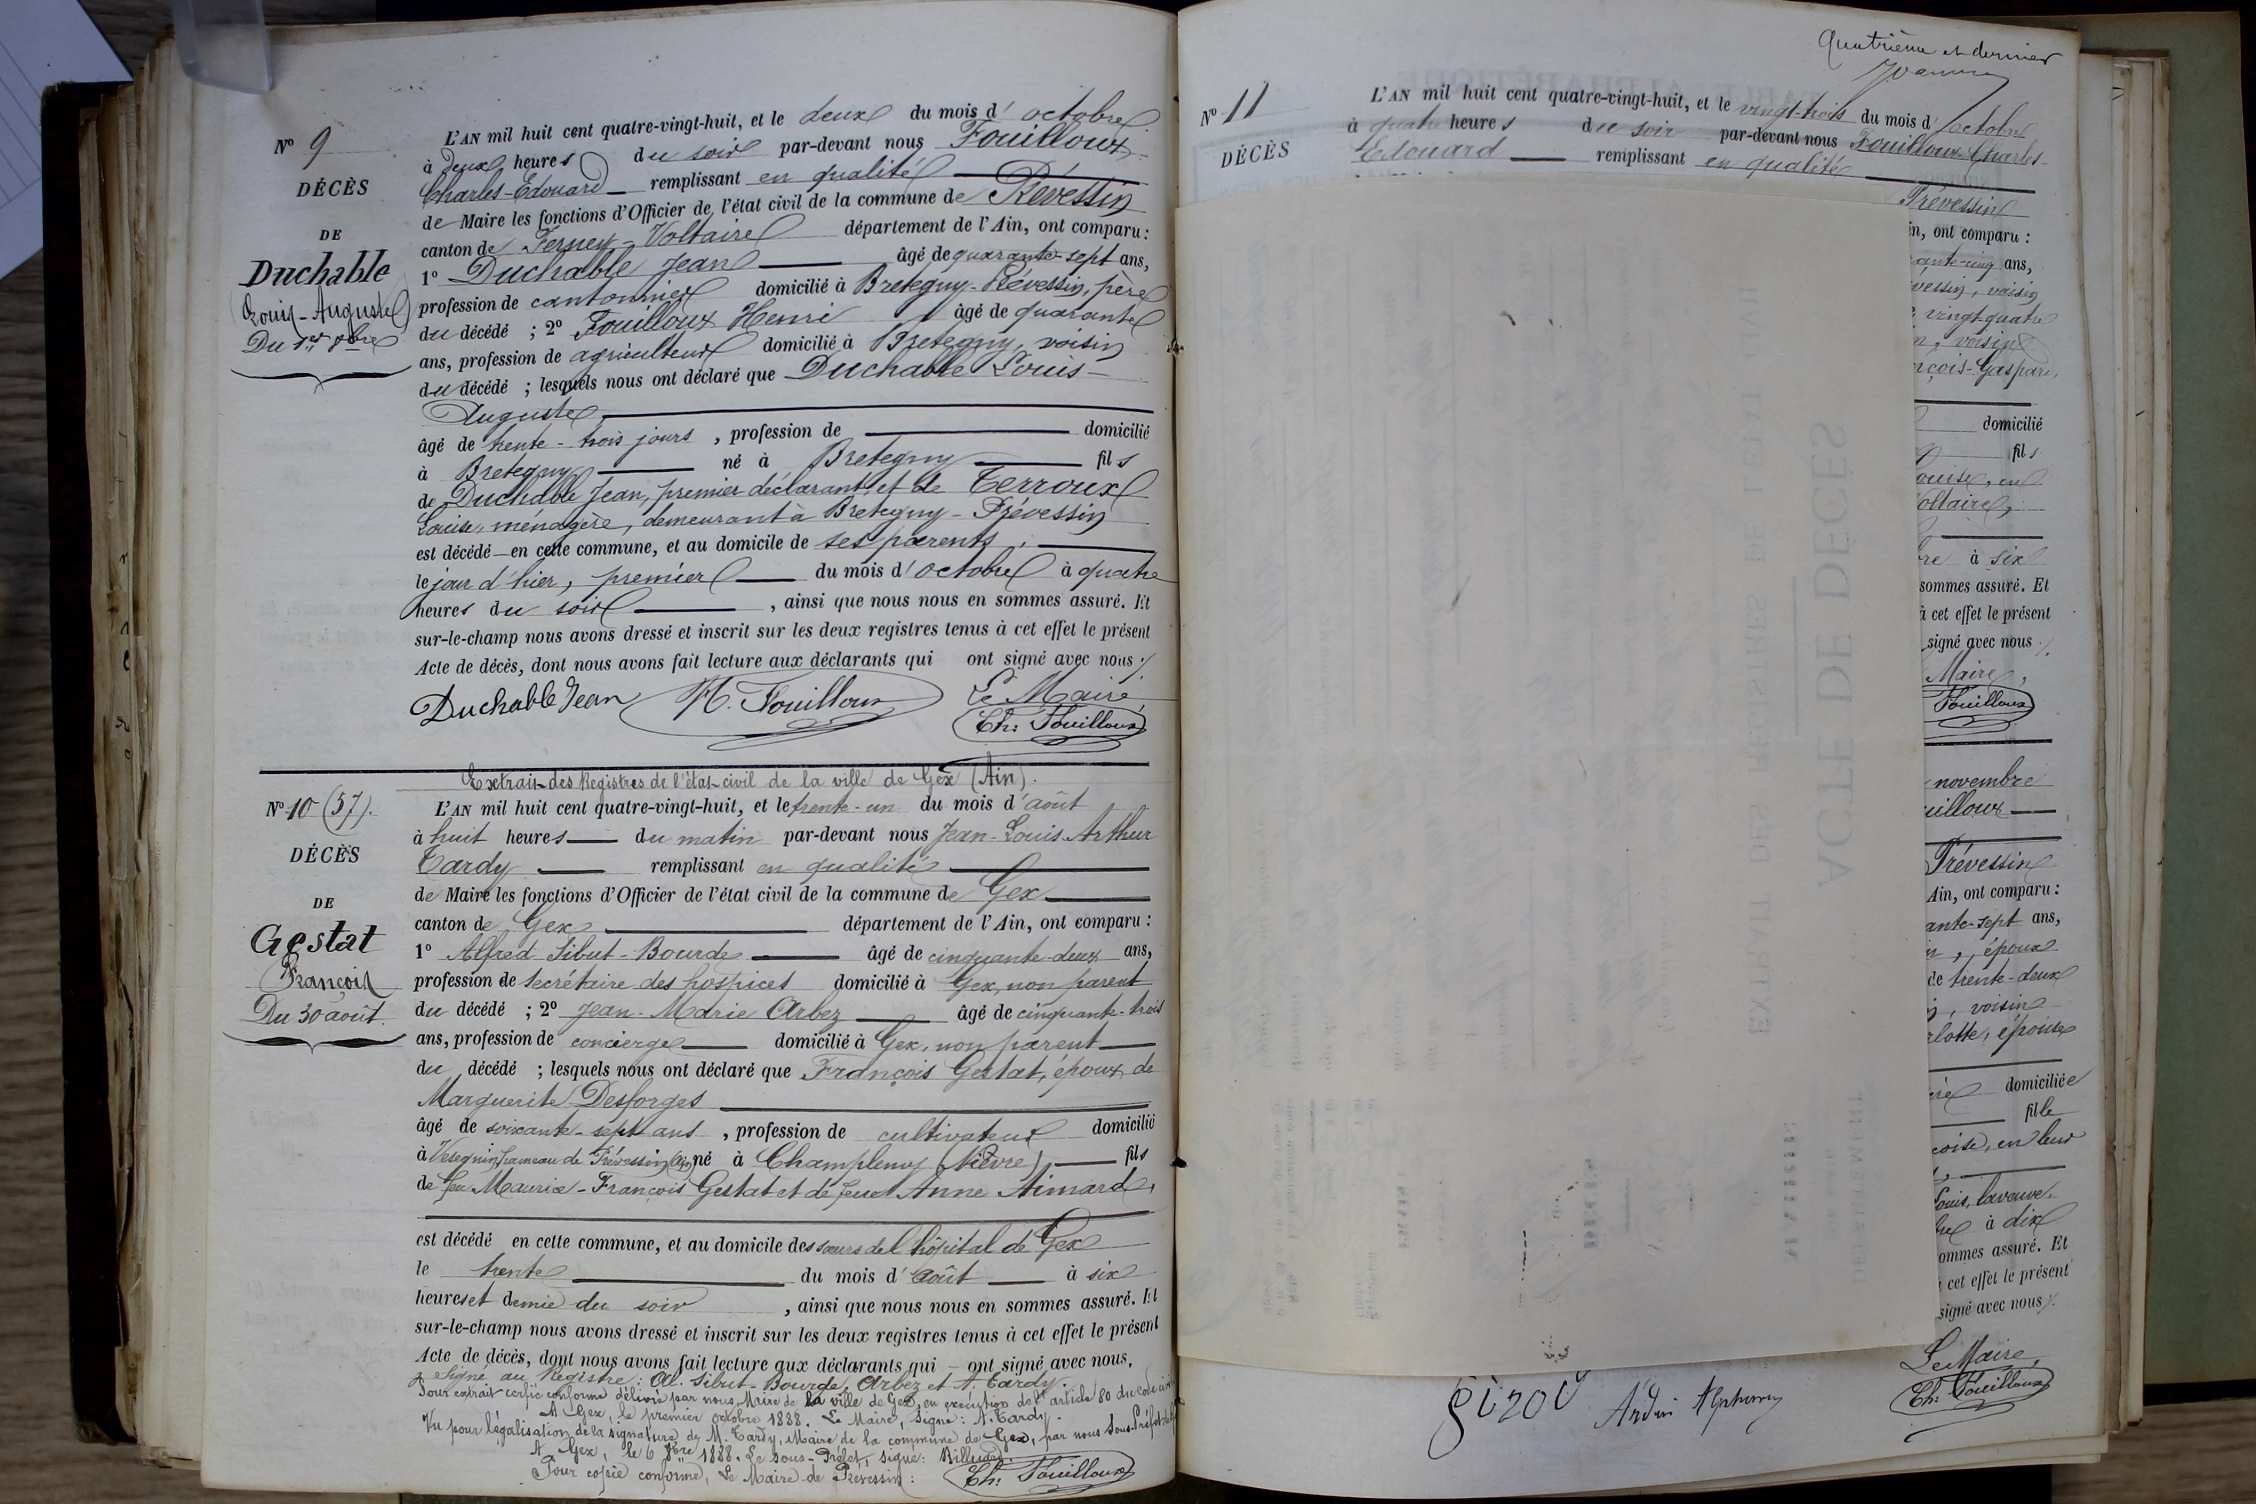 Nº 9
DÉCÈS
DE
Duchable
Louis-Auguste
Du 1er 8bre
L'AN mil huit cent quatre-vingt-huit, et le deux du mois d'octobre
à deux heures du soir par-devant nous Fouilloux
Charles-Edouard remplissant en qualité
de Maire les fonctions d'Officier de l'état civil de la commune de Prévessin
canton de Ferney-Voltaire département de l'Ain, ont comparu :
1º Duchable Jean âgé de quarante-sept ans,
profession de cantonnier domicilié à Bretegny-Prévessin, père
du décédé ; 2º Fouilloux Henri âgé de quarante
ans, profession de agriculteur domicilié à Bretegny, voisin
du décédé ; lesquels nous ont déclaré que Duchable Louis-
Auguste
âgé de trente-trois jours, profession de domicilié
à Bretegny né à Bretegny fils
de Duchable Jean, premier déclarant, et de Terroux
Louise, ménagère, demeurant à Bretegny-Prévessin
est décédé en cette commune, et au domicile de ses parents,
le jour d'hier, premier du mois d'octobre à quatre
heures du soir, ainsi que nous nous en sommes assuré. Et
sur-le-champ nous avons dressé et inscrit sur les deux registres tenus à cet effet le présent
Acte de décès, dont nous avons fait lecture aux déclarants qui ont signé avec nous ./.
Duchable Jean H. Fouilloux Le Maire,
Ch: Fouilloux
Extrait des Registres de l'état-civil de la ville de Gex (Ain).
Nº 10 (57).
DÉCÈS
DE
Gestat
François
Du 30 août.
L'AN mil huit cent quatre-vingt-huit, et le trente-un du mois d'août
à huit heures du matin par-devant nous Jean-Louis-Arthur
Tardy remplissant en qualité
de Maire les fonctions d'Officier de l'état civil de la commune de Gex
canton de Gex département de l'Ain, ont comparu :
1º Alfred Sibut-Bourde âgé de cinquante-deux ans,
profession de secrétaire des hospices domicilié à Gex, non parent
du décédé ; 2º Jean-Marie Arbez âgé de cinquante-trois
ans, profession de concierge domicilié à Gex, non parent
du décédé ; lesquels nous ont déclaré que François Gestat, époux de
Marguerite Desforges
âgé de soixante-sept ans, profession de cultivateur domicilié
à Vesegnin, hameau de Prévessin (Ain) né à Champlemy (Nièvre) fils
de feu Maurice-François Gestat et de feue Anne Aimard,
est décédé en cette commune, et au domicile des sœurs de l'hôpital de Gex
le trente du mois d'août à six
heures et demie du soir, ainsi que nous nous en sommes assuré. Et
sur-le-champ nous avons dressé et inscrit sur les deux registres tenus à cet effet le présent
Acte de décès, dont nous avons fait lecture aux déclarants qui ont signé avec nous.
Signé au Registre : Al. Sibut-Bourde, Arbez et A. Tardy.
Pour extrait certifié conforme délivré par nous, Maire de la ville de Gex, en exécution de l'article 80 du code civil
A Gex, le premier octobre 1888. Le Maire, signé : A. Tardy.
Vu pour légalisation de la signature de M. Tardy, Maire de la commune de Gex, par nous Sous-Préfet
A Gex, le 6 8bre 1888. Le Sous-Préfet, signé :
Pour copie conforme, Le Maire de Prévessin :
Ch: Fouilloux
Quatrième et dernier
Nº 11
DÉCÈS
L'AN mil huit cent quatre-vingt-huit, et le vingt-trois du mois d'octobre
à quatre heures du soir par-devant nous Fouilloux Charles-
Edouard remplissant en qualité
Prévessin
in, ont comparu :
ante-cinq ans,
vessin, voisin
vingt-quatre
n, voisin
nçois-Gaspard,
domicilié
fils
ouise, en
oltaire,
bre à six
sommes assuré. Et
à cet effet le présent
signé avec nous ./.
Maire,
Fouilloux
novembre
uilloux
Prévessin
Ain, ont comparu :
ante-sept ans,
n, époux
de trente-deux
, voisin
rlotte, épouse
domiciliée
fille
çoise, en leur
Louis, laveuve,
bre à dix
ommes assuré. Et
cet effet le présent
signé avec nous ./.
Le Maire,
Ch: Fouilloux
girod
Alphonse
ACTE DE DÉCÈS